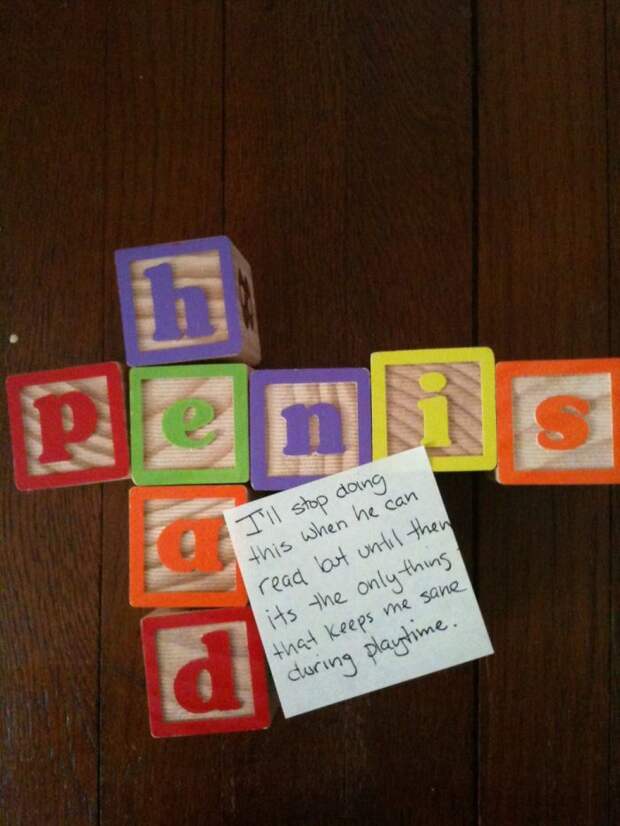 h
penis
a
d
I'll stop doing
this when he can
read but until then
its the only thing
that keeps me sane
during playtime.